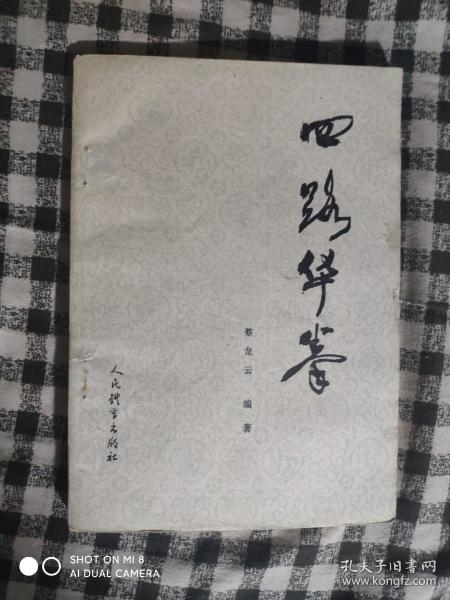 四路华拳
蔡龙云 编著
人民体育出版社
SHOT ON MI 8
AI DUAL CAMERA
孔夫子旧书网
www.kongfz.com